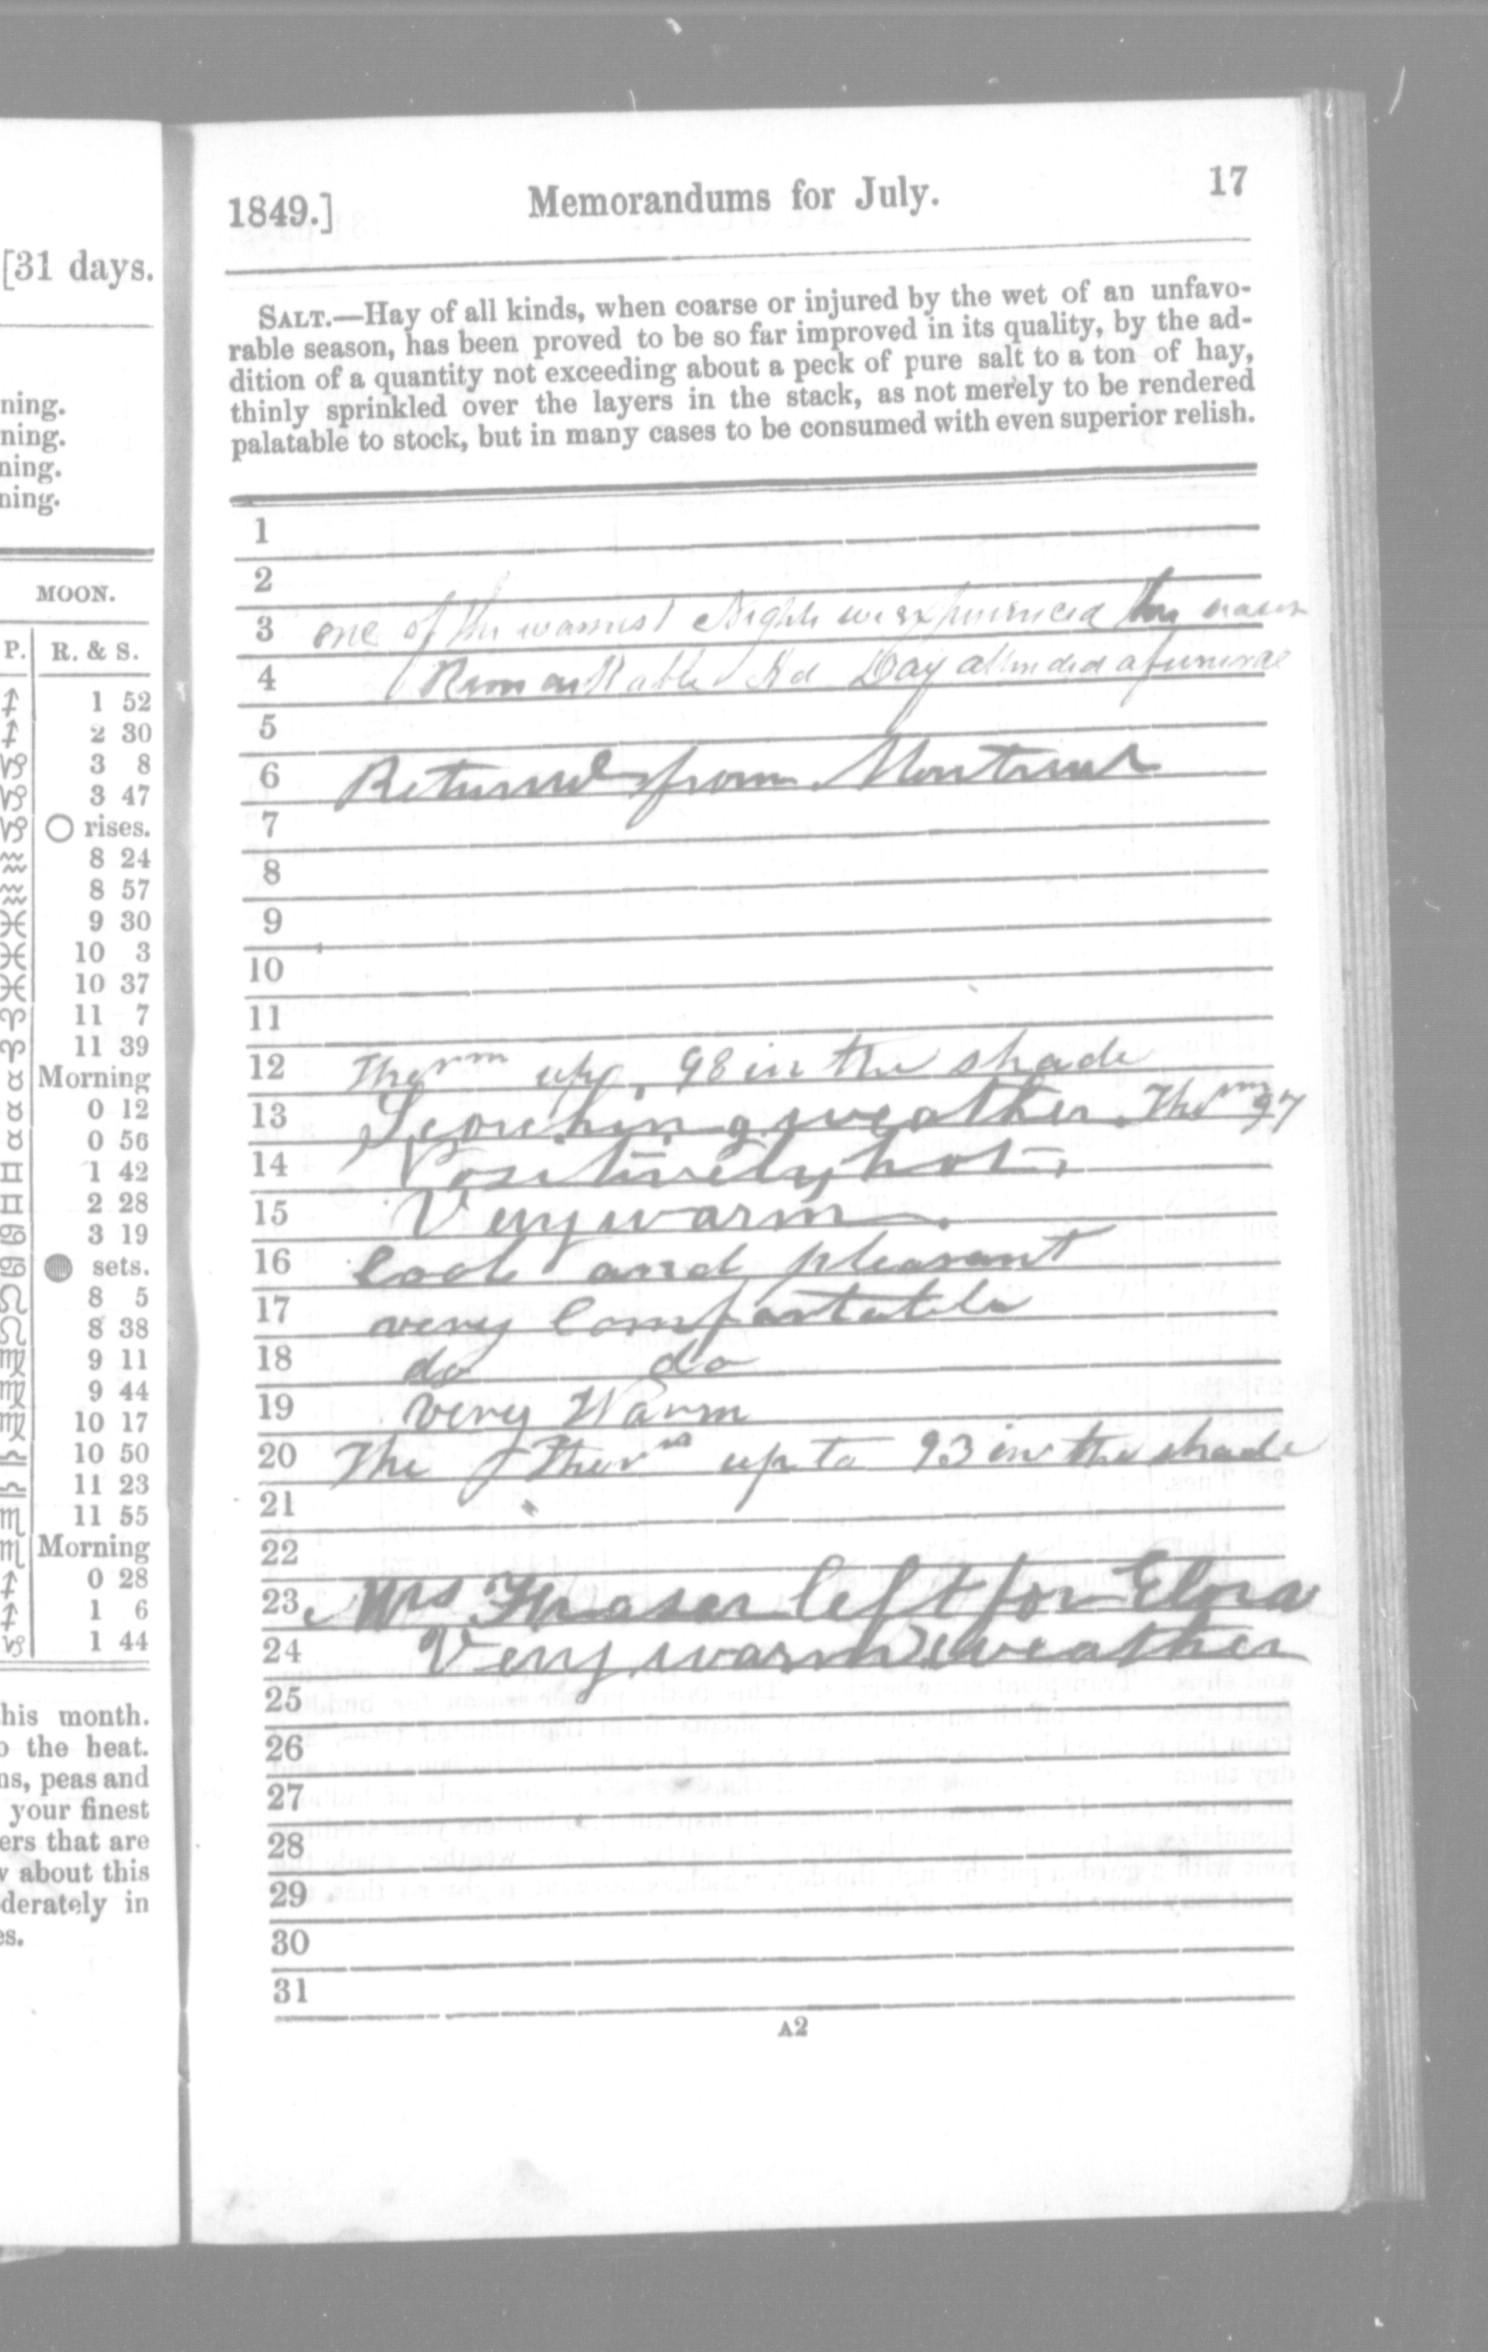 [31 days.
ning.
ning.
ning.
ning.
MOON.
P. R. & S.
♐ 1 52
♐ 2 30
♑ 3 8
♑ 3 47
♑ ○ rises.
♒ 8 24
♒ 8 57
♓ 9 30
♓ 10 3
♓ 10 37
♈ 11 7
♈ 11 39
♉ Morning
♉ 0 12
♉ 0 56
♊ 1 42
♊ 2 28
♋ 3 19
♋ ● sets.
♌ 8 5
♌ 8 38
♍ 9 11
♍ 9 44
♍ 10 17
♎ 10 50
♎ 11 23
♏ 11 55
♏ Morning
♐ 0 28
♐ 1 6
♑ 1 44
his month.
o the heat.
ns, peas and
your finest
ers that are
v about this
derately in
es.
1849.] Memorandums for July. 17
SALT.—Hay of all kinds, when coarse or injured by the wet of an unfavo-
rable season, has been proved to be so far improved in its quality, by the ad-
dition of a quantity not exceeding about a peck of pure salt to a ton of hay,
thinly sprinkled over the layers in the stack, as not merely to be rendered
palatable to stock, but in many cases to be consumed with even superior relish.
1
2
3 one of the warmest Nights we experienced this season
4 Remarkable Day attended a funeral
5
6 Returned from Montreal
7
8
9
10
11
12 Therm up, 98 in the shade
13 Scorching weather. Therm 97
14 Positively hot,
15 Very warm.
16 Cool and pleasant
17 very Comfortable
18 do do
19 very Warm
20 The Therm up to 93 in the shade
21
22
23 Mrs Fraser left for Elora
24 Very warm weather
25
26
27
28
29
30
31
A2